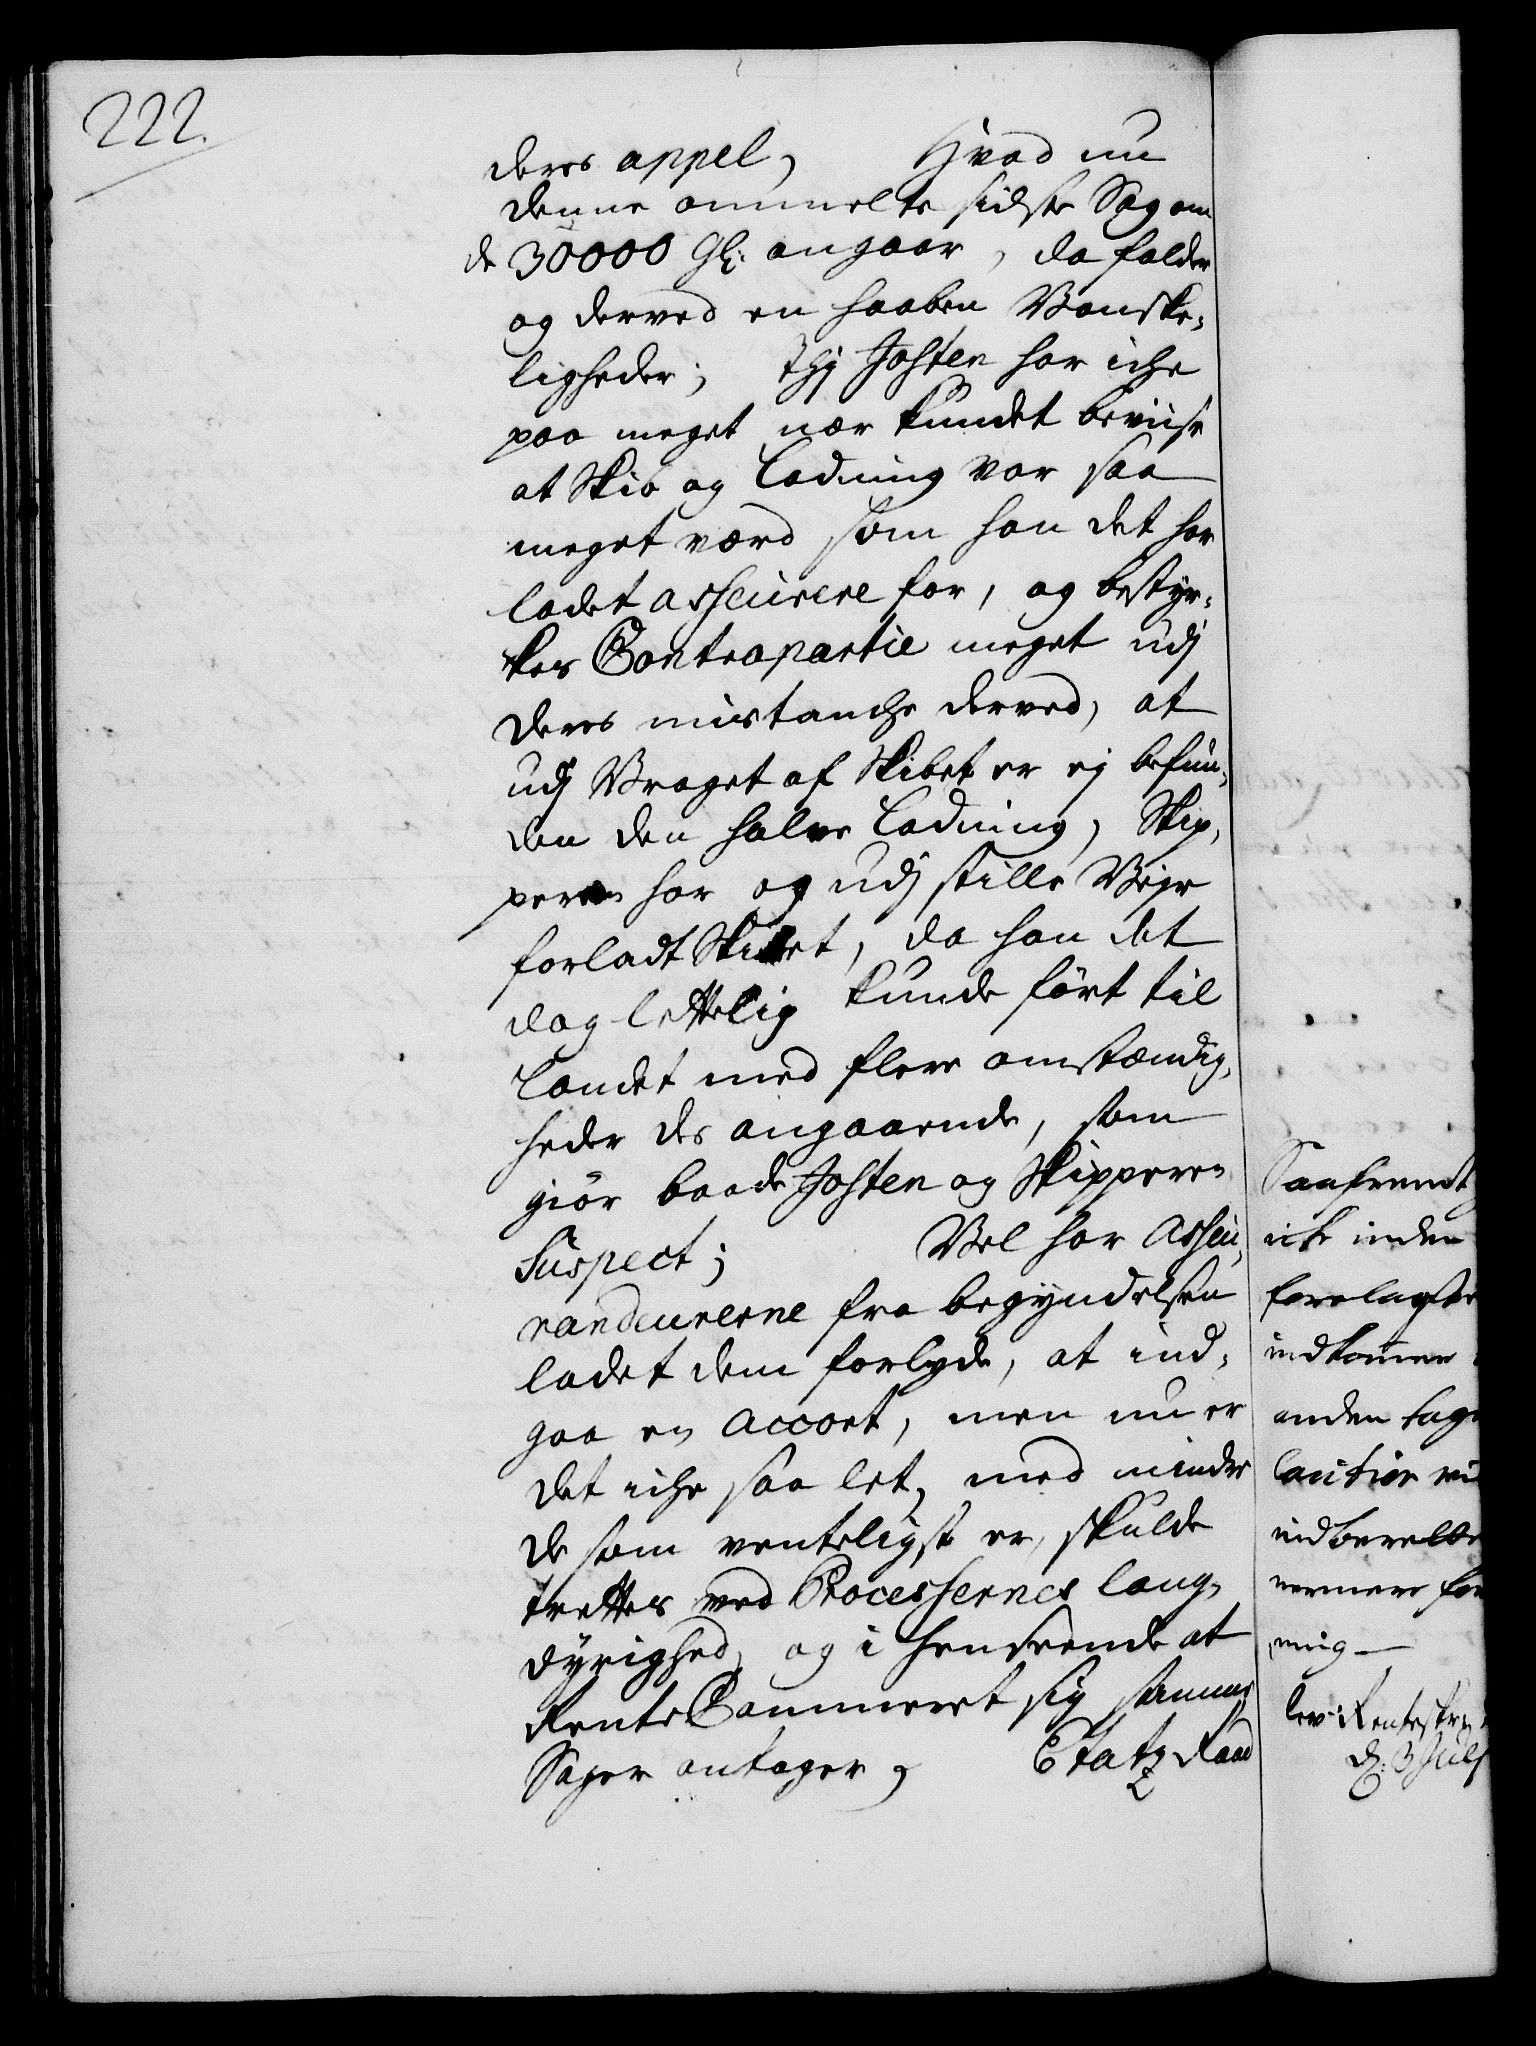 222.
deres appel, Hvad nu
denne ommelte sidste Sag om
de 30000 Gl: angaar, da falder
og derved en haaben Vanske-
ligheder; thj Josten har iche
paa meget nær kundet beviise
at Skib og Ladning var saa
meget værd som han det har
ladet asseurere for, og bestyr-
kes Contrapartie meget udj
deres mistanche derved, at
udj Vraget af Skibet er ej befun-
den den halve Ladning, Skip-
peren har og udj stille Vejr
forladt Skibet, da han det
dog lettelig kunde ført til
Landet med flere omstændig-
heder des angaaende, som
giör baade Josten og Skipperen
Suspect; Vel har Asseu-
randeurerne fra begyndelsen
ladet dem forlyde, at ind-
gaa en Accort, men nu er
det iche saa let, med mindre
de som venteligst er, skulde
trettes ved Processernes lang-
dyrighed, og i henseende at
Rente Cammeret sig samme
Sager antager, Etatz Raad
Saafremt
ick inden
forelagte
indkommer
anden tag
Caution
indberette
nermere for
ning
lev: Rentesk
d: 3 Julj